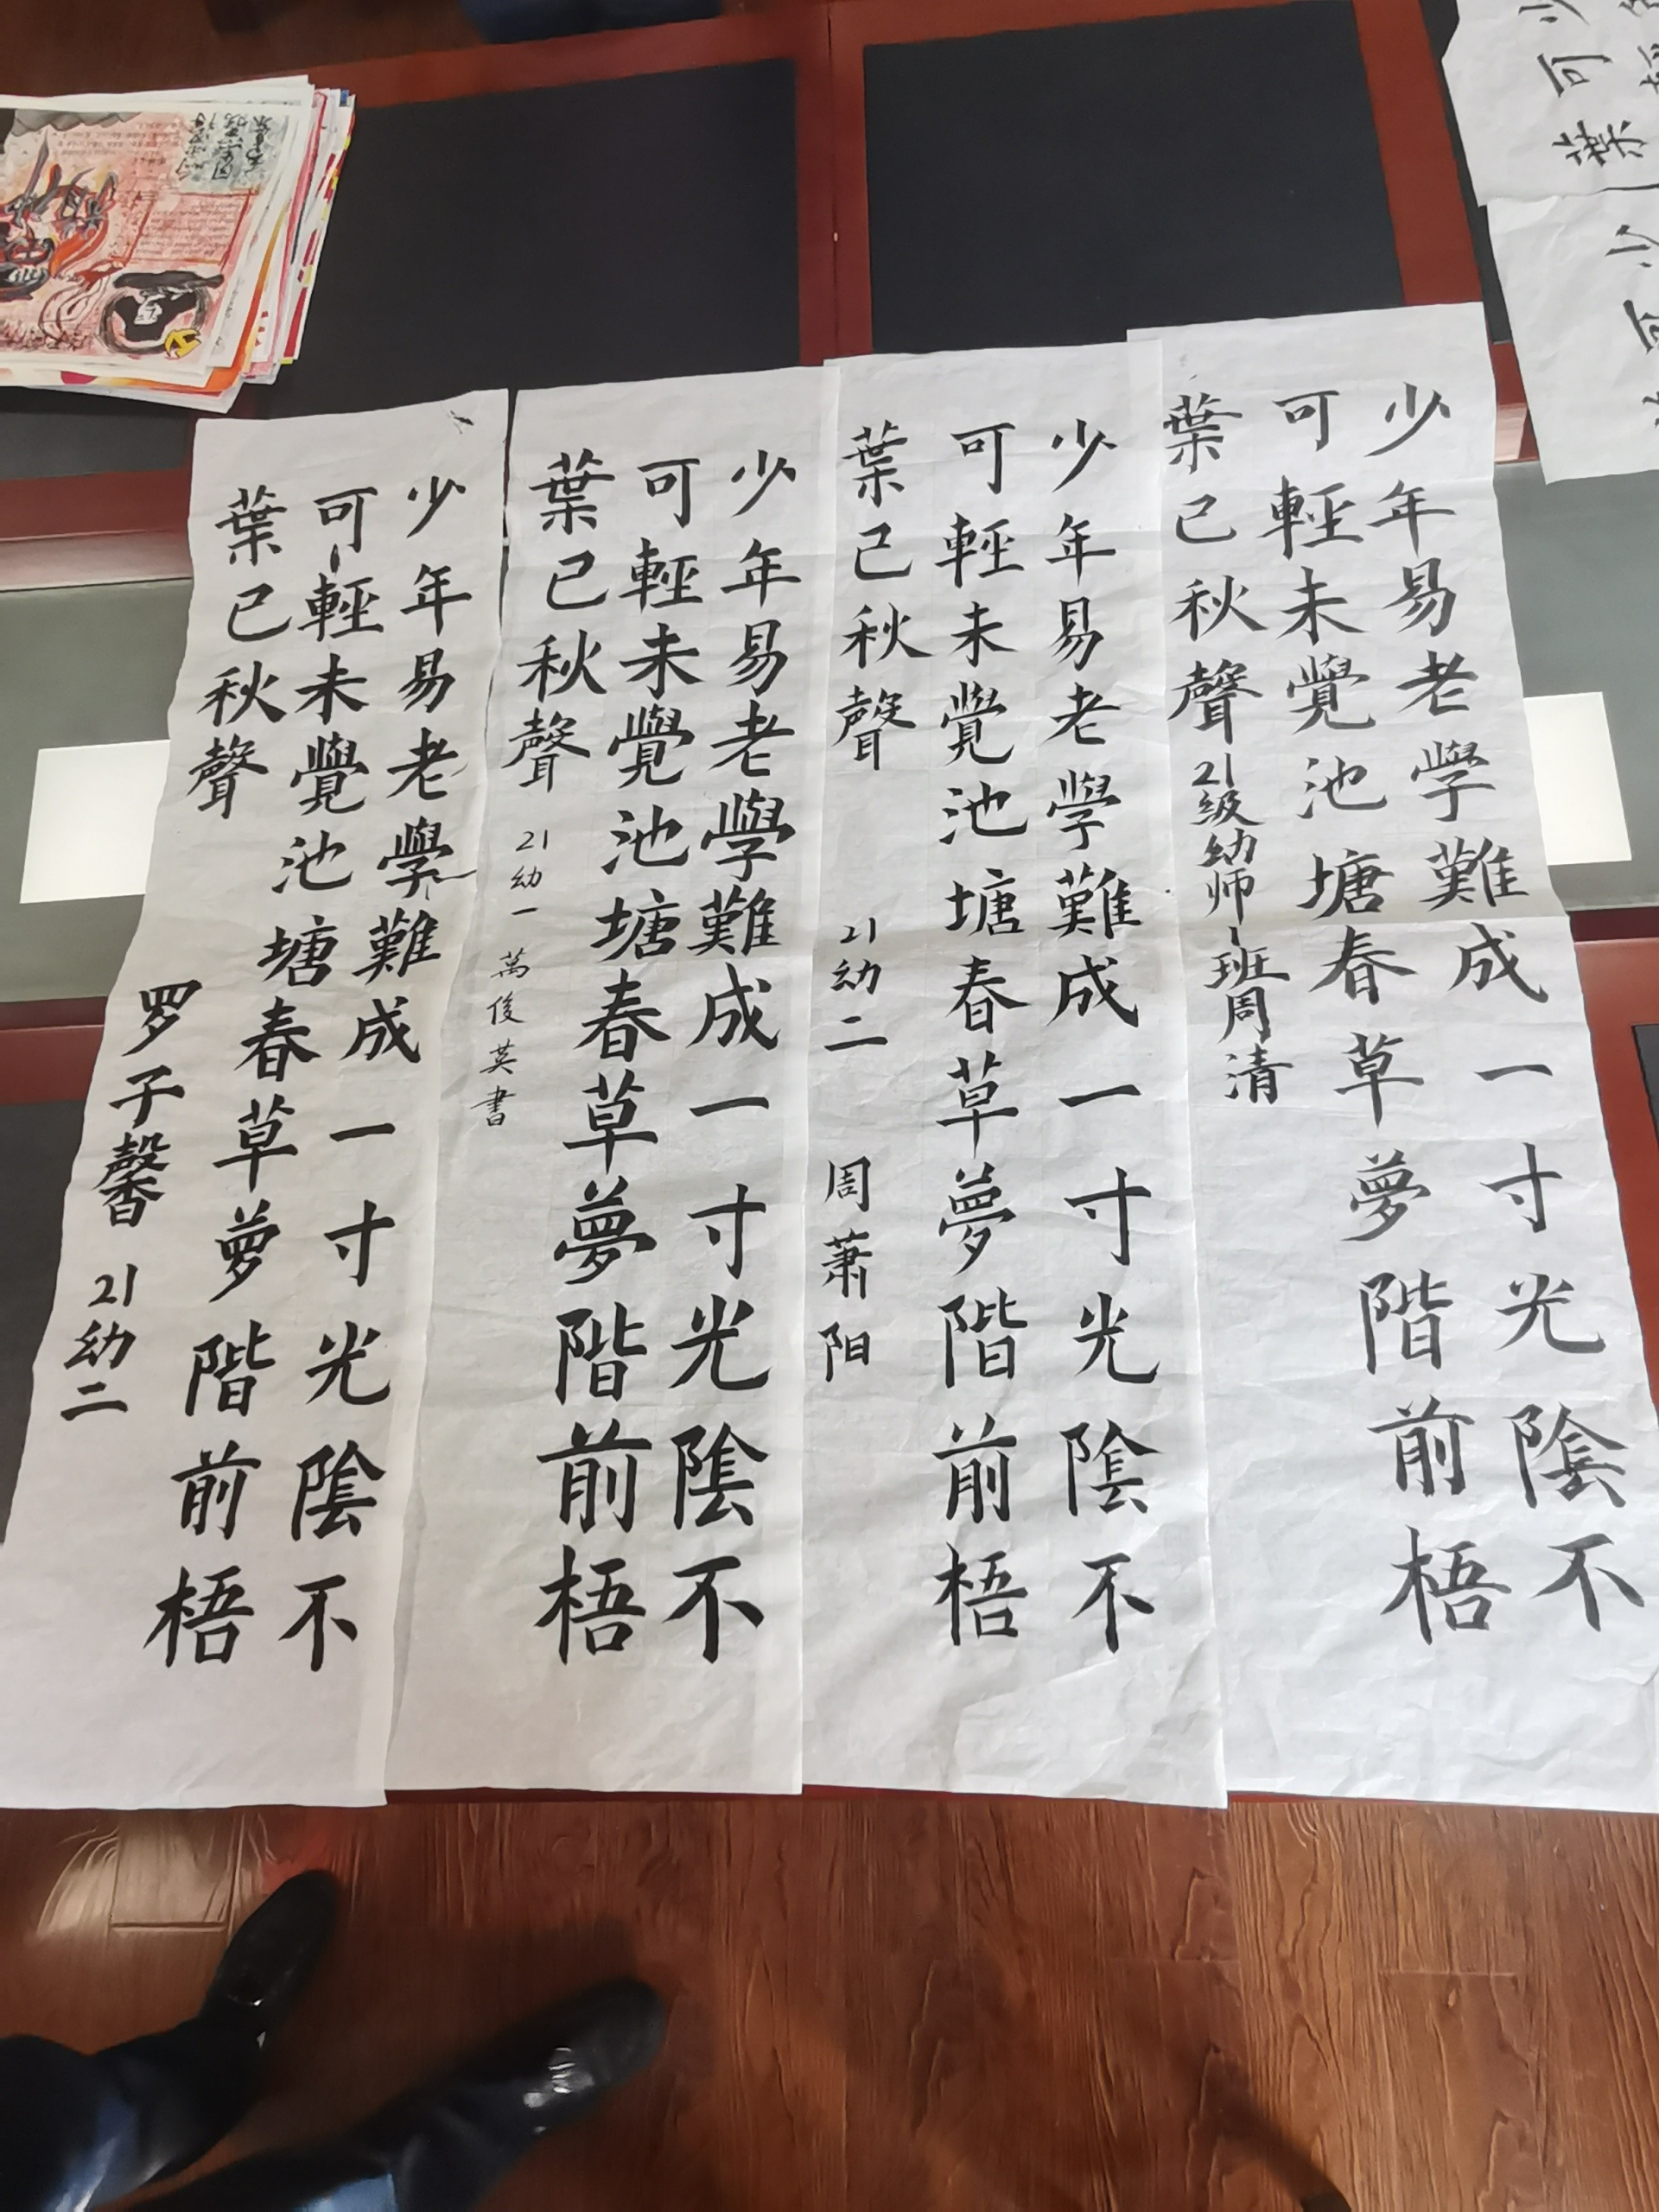 少年易老學難成一寸光陰不
可輕未覺池塘春草夢階前梧
葉已秋聲
21级幼师一班周清
少年易老學難成一寸光陰不
可輕未覺池塘春草夢階前梧
葉已秋聲
21幼二 周萧阳
少年易老學難成一寸光陰不
可輕未覺池塘春草夢階前梧
葉已秋聲
21幼一 萬俊英書
少年易老學難成一寸光陰不
可輕未覺池塘春草夢階前梧
葉已秋聲
罗子馨 21幼二
少
可
葉
少
可